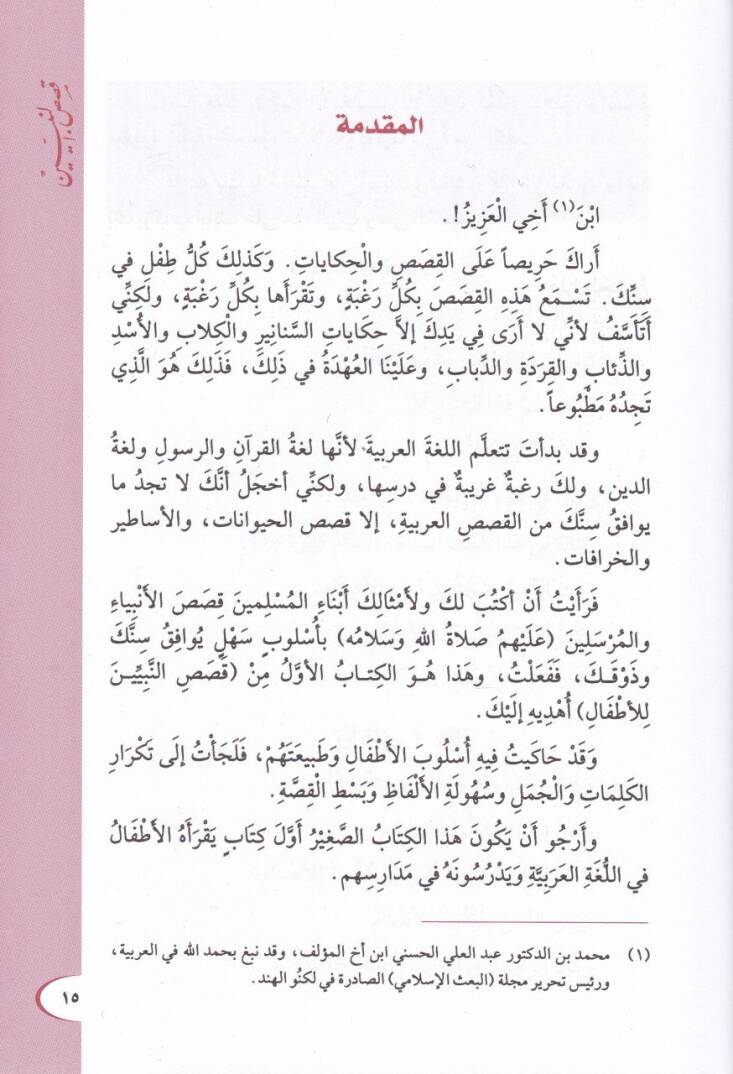 قصص النبيين
المقدمة
ابْنَ(١) أَخِي الْعَزِيزُ!.
أَراكَ حَرِيصاً عَلَى القِصَصِ والْحِكاياتِ. وَكَذلِكَ كُلُّ طِفْلٍ في
سنِّكَ. تَسْمَعُ هَذِهِ القِصَصَ بِكُلِّ رَغْبَةٍ، وتَقْرَأها بِكُلِّ رَغْبَةٍ، ولَكِنِّي
أَتَأَسَّفُ لأنِّي لا أَرَى فِي يَدِكَ إلاَّ حِكاياتِ السَّنانِيرِ والْكِلابِ والأُسْدِ
والذِّئابِ والقِرَدَةِ والدِّبابِ، وعَلَيْنا العُهْدَةُ في ذَلِكَ، فَذَلِكَ هُوَ الَّذِي
تَجِدُهُ مَطْبُوعاً.
وقد بدأتَ تتعلَّم اللغةَ العربيةَ لأنَّها لغةُ القرآنِ والرسولِ ولغةُ
الدين، ولكَ رغبةٌ غريبةٌ في درسِها، ولكنِّي أخجَلُ أنَّكَ لا تجدُ ما
يوافقُ سِنَّكَ من القصصِ العربيةِ، إلا قصص الحيوانات، والأساطير
والخرافات.
فَرَأَيْتُ أَنْ أَكْتُبَ لكَ ولأمْثالِكَ أَبْنَاءِ المُسْلِمينَ قِصَصَ الأَنْبِياءِ
والمُرْسَلِينَ (عَلَيْهِمُ صَلاةُ اللهِ وَسَلامُه) بأُسْلوبٍ سَهْلٍ يُوافِقُ سِنَّكَ
وذَوْقَـكَ، فَفَعَلْتُ، وهَذا هُـوَ الكِتـابُ الأوَّلُ مِنْ (قَصَصِ النَّبِيِّيـنَ
لِلأطْفَالِ) أُهْدِيهِ إلَيْكَ.
وَقَدْ حَاكَيتُ فِيهِ أُسْلُوبَ الأَطْفَالِ وَطَبِيعَتَهُمْ، فَلَجَأْتُ إلَى تَكْرَارِ
الكَلِمَاتِ وَالْجُمَلِ وسُهُولَةِ الأَلْفَاظِ وَبَسْطِ الْقِصَّةِ.
وأَرْجُو أَنْ يَكُونَ هَذا الكِتابُ الصَّغِيْرُ أَوَّلَ كِتَابٍ يَقْرَأهُ الأَطْفَالُ
في اللُّغَةِ العَرَبِيَّةِ وَيَدْرُسُونَهُ في مَدَارِسِهم.
(١) محمد بن الدكتور عبد العلي الحسني ابن أخ المؤلف، وقد نبغ بحمد الله في العربية،
ورئيس تحرير مجلة (البعث الإسلامي) الصادرة في لكنُو الهند.
١٥